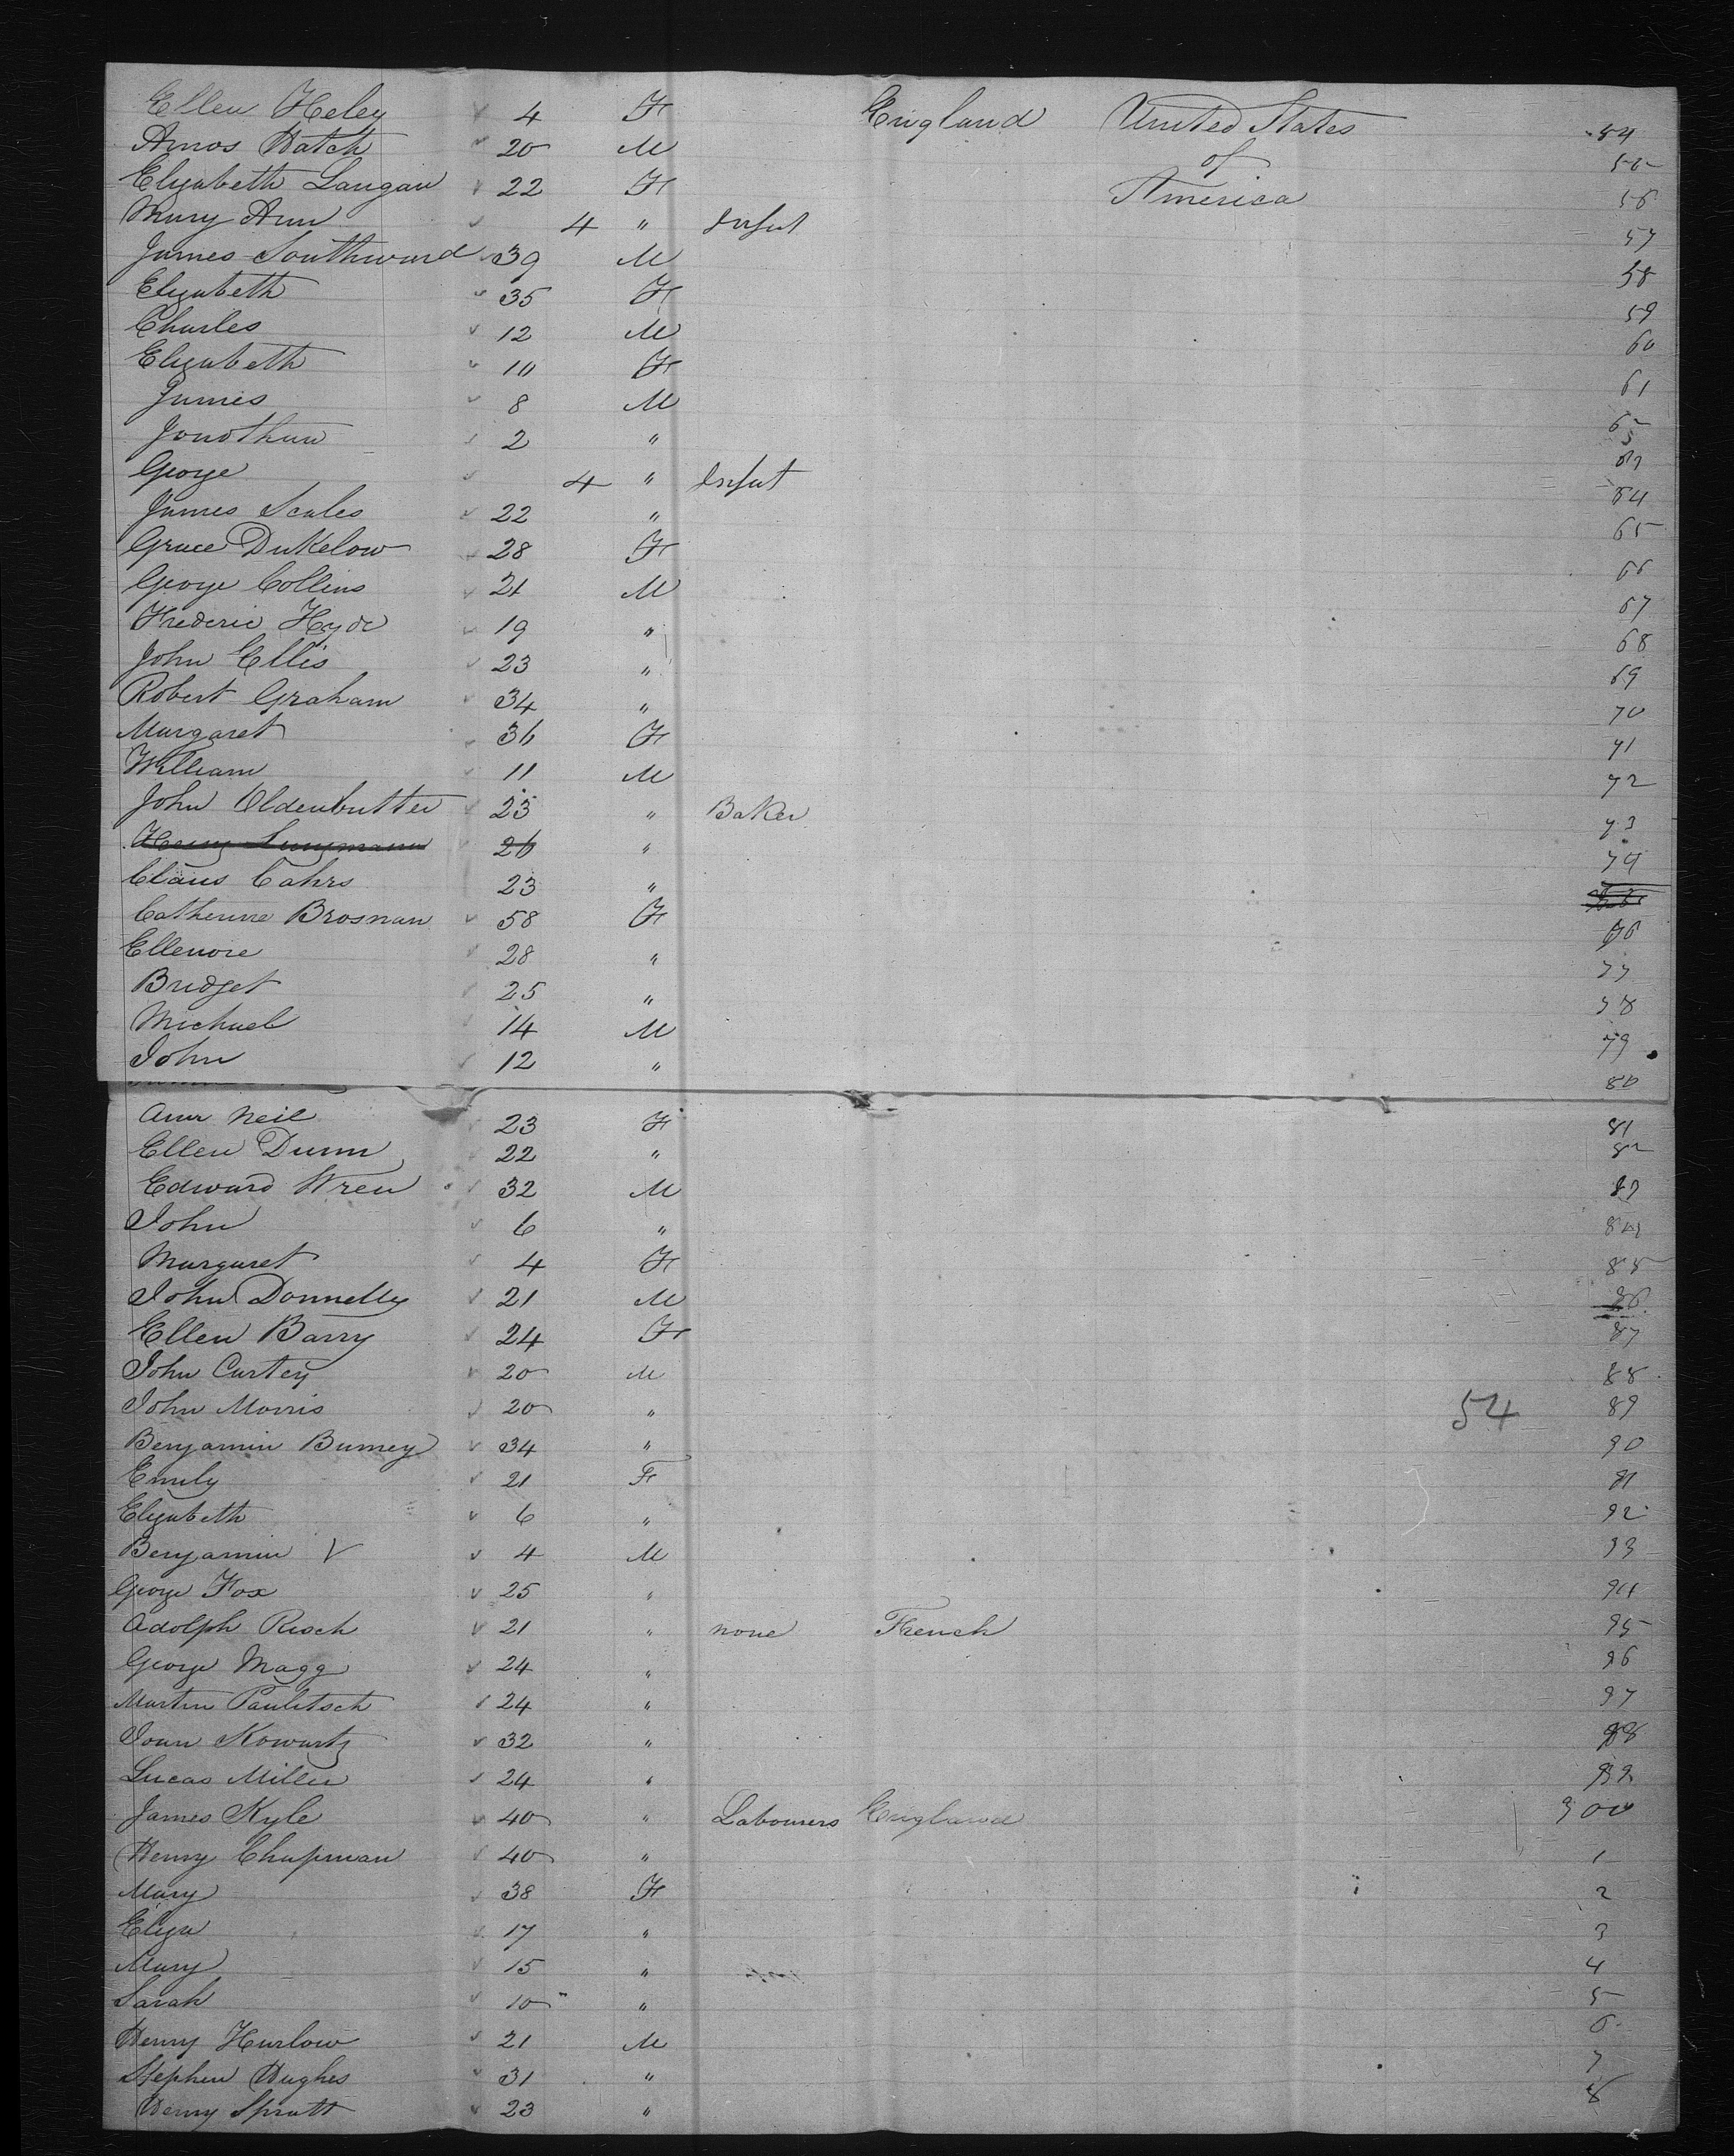 Ellen Heley 4 F England United States 54
Amos Hatch 20 M of 55
Elizabeth Langan 22 F America 56
Mary Ann 4 " Infut 57
James Southward 39 M 58
Elizabeth 35 F 59
Charles 12 M 60
Elizabeth 10 F 61
James 8 M 62
Jonothan 2 " 63
George 4 " Infut 64
James Scales 22 " 65
Grace Dukelow 28 F 66
George Collins 21 M 67
Frederic Hyde 19 " 68
John Ellis 23 " 69
Robert Graham 34 " 70
Margaret 36 F 71
William 11 M 72
John Oldenbutter 23 " Baker 73
Henry 26 " 74
Claus Cahrs 23 "
Catherine Brosnan 58 F 76
Ellenore 28 " 77
Bridget 25 " 78
Michael 14 M 79
John 12 " 80
Ann Neil 23 F 81
Ellen Dunn 22 " 82
Edward Wren 32 M 83
John 6 " 84
Margaret 4 F 85
John Donnelly 21 M 86
Ellen Barry 24 F 87
John Curtey 20 M 88
John Morris 20 " 54 89
Benjamin Burney 34 " 90
Emily 21 F 91
Elizabeth 6 " 92
Benjamin V 4 M 93
George Fox 25 " 94
Adolph Risch 21 " none French 95
George Magg 24 " 96
Martin Paulitsch 24 " 97
Joan Kowartz 32 " 98
Lucas Miller 24 " 99
James Kyle 40 " Labourers England 900
Henry Chapman 40 " 1
Mary 38 F 2
Eliza 17 " 3
Mary 15 " 4
Sarah 10 " 5
Henry Hurlow 21 M 6
Stephen Hughes 31 " 7
Henry Spratt 23 " 8